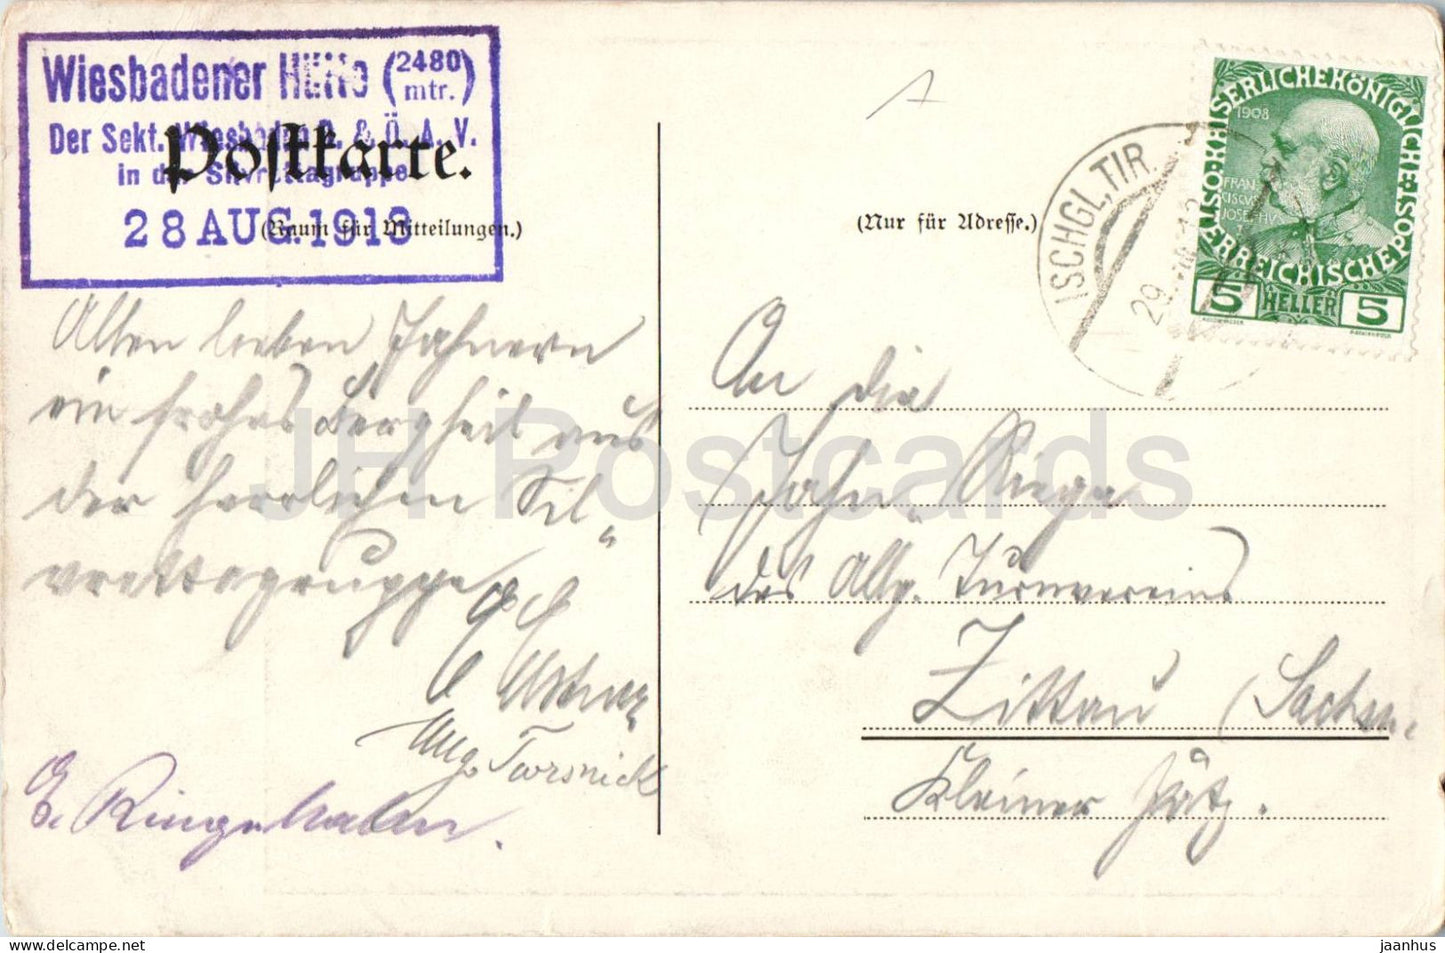 Wiesbadener Hütte (2480 mtr.)
Der Sekt. Wiesbaden D. & Ö. A. V.
in der Silvrettagruppe
28 AUG. 1913
Postkarte.
(Raum für Mitteilungen.)
(Nur für Adresse.)
ISCHGL, TIR.
29
KAISERLICHE KÖNIGLICHE ÖSTERREICHISCHE POST
1908
FRANCISCUS JOSEPHUS
5 HELLER 5
Allen lieben Jahnern
ein frohes Bergheil aus
der herrlichen Sil-
vrettagruppe
Aug.
E.
An die
Jahn-Riege
des Allg. Turnvereins
Zittau (Sachsen.
Kleiner
JH Postcards
https://www.hipstamp.com/store/jh-postcards
jaanhus